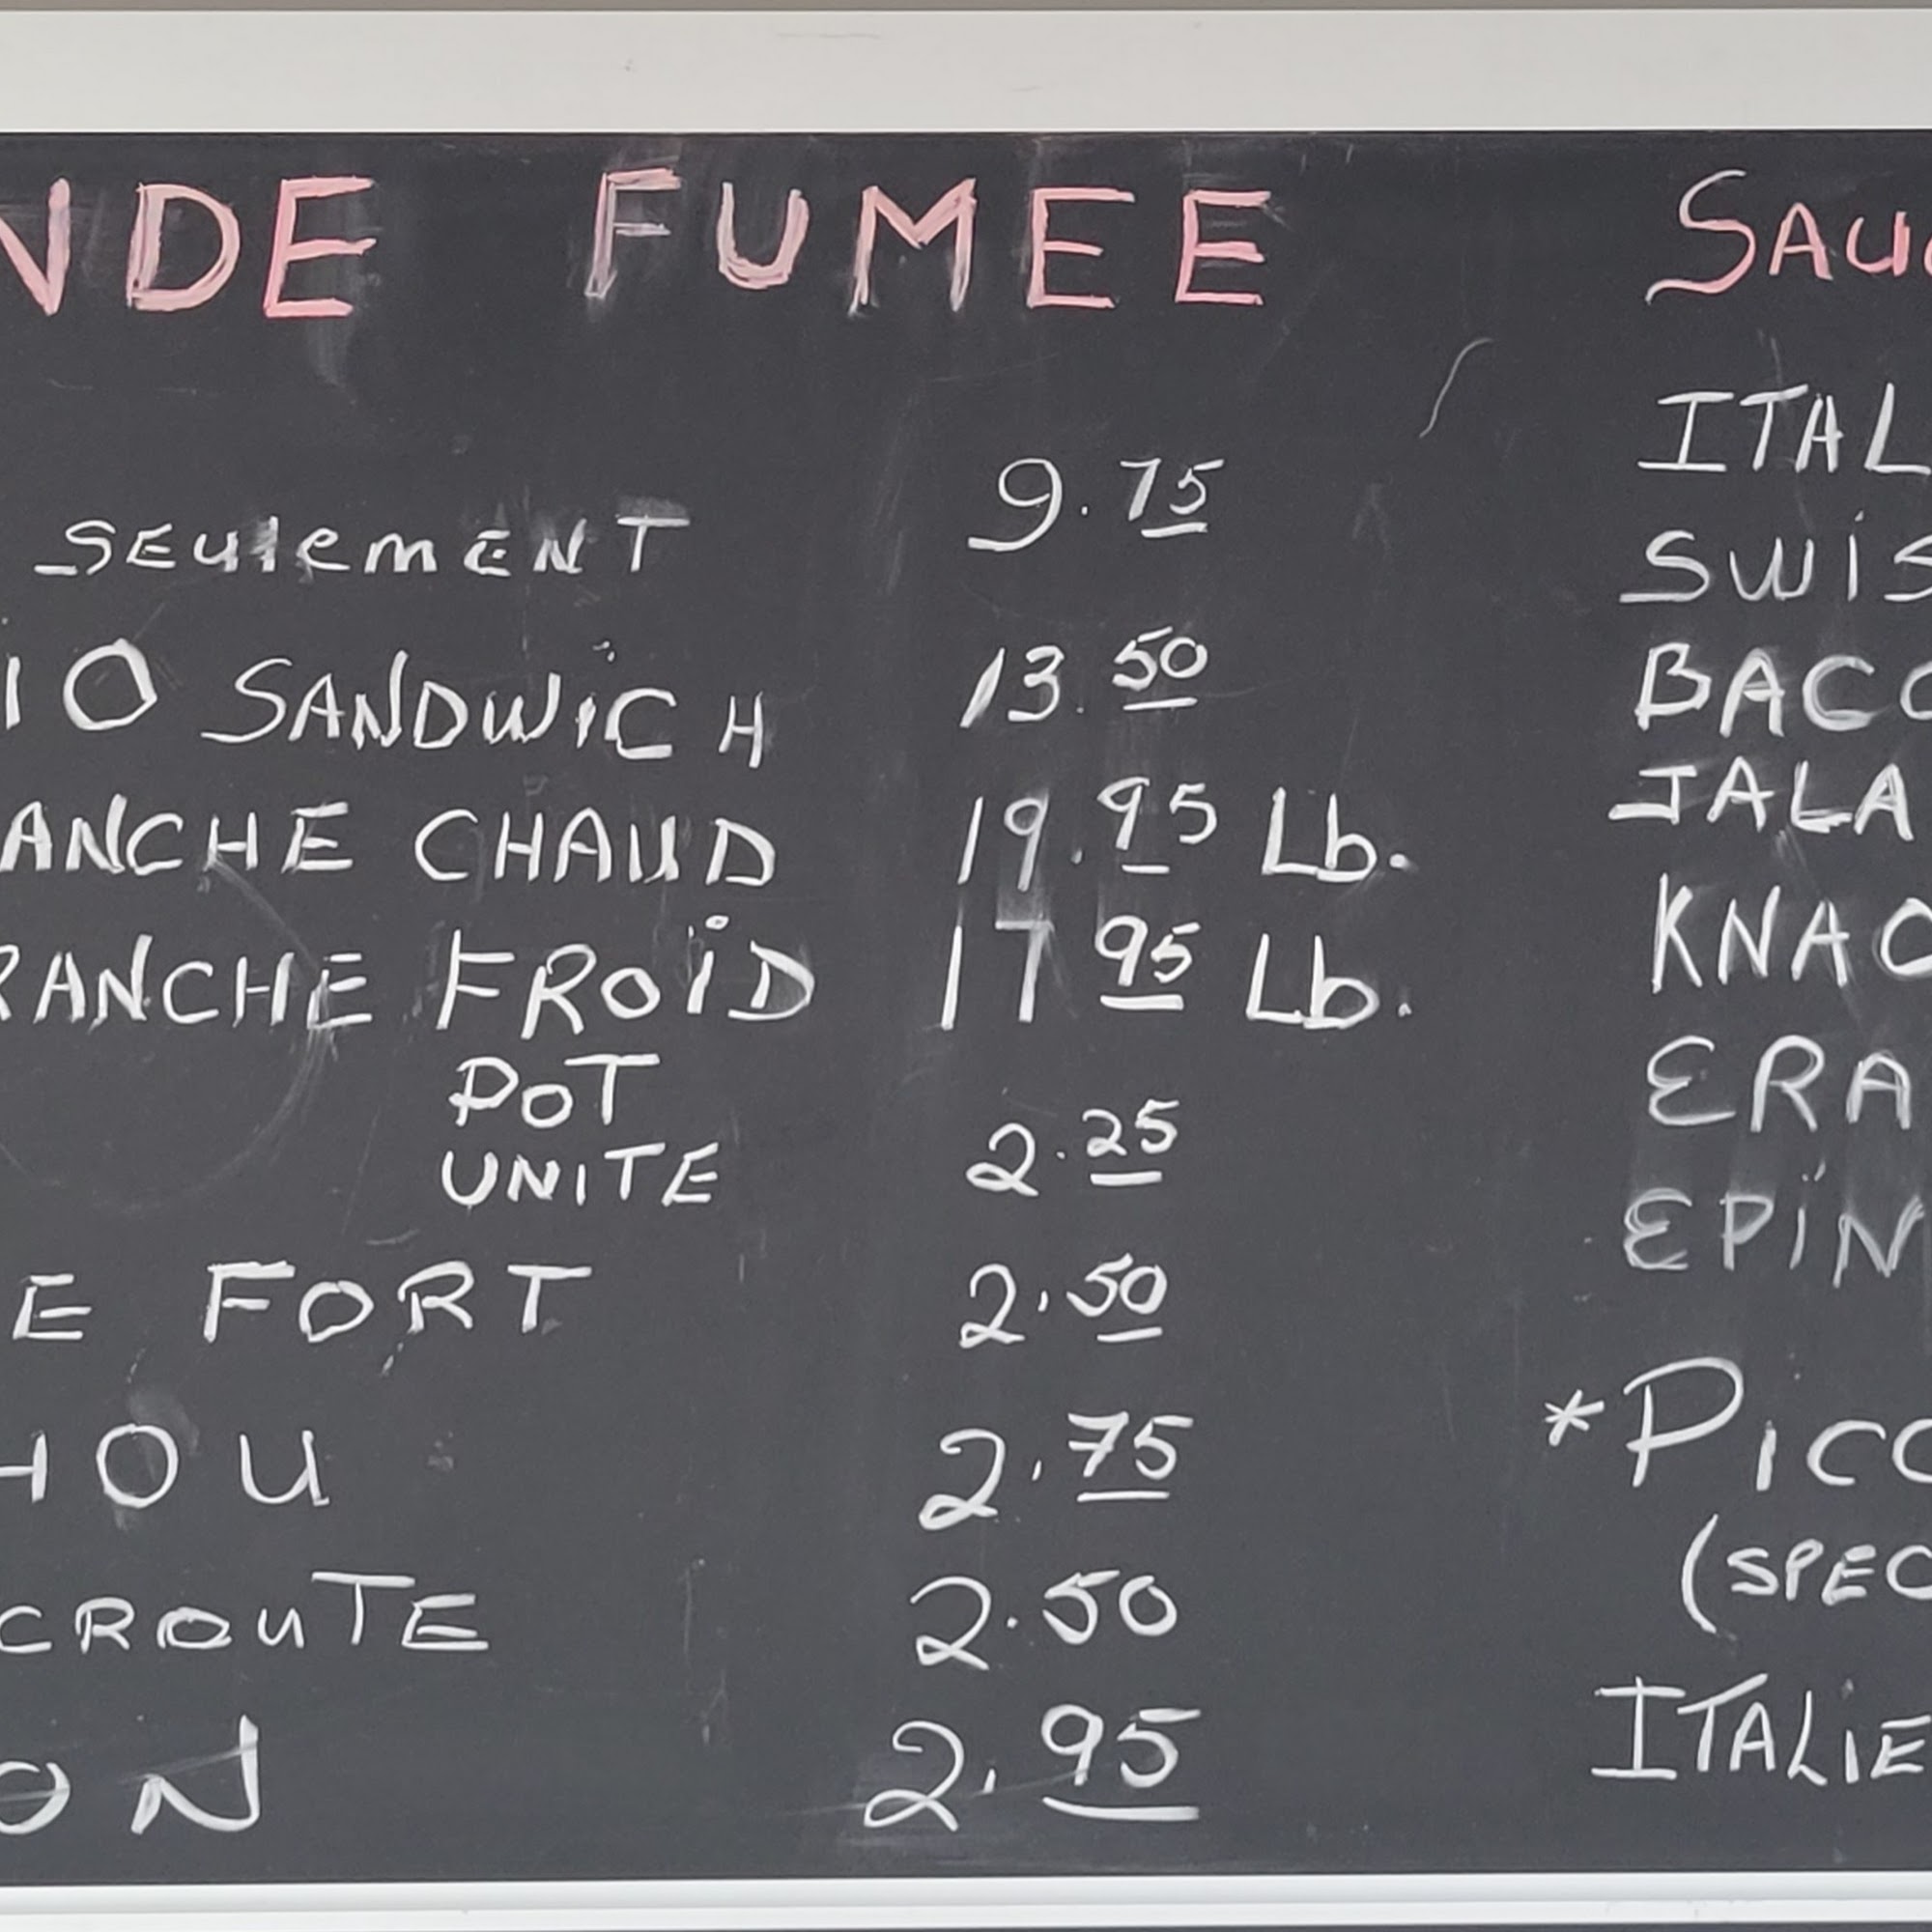 NDE FUMEE
SEULEMENT 9.75
IO SANDWICH 13.50
ANCHE CHAUD 19.95 Lb.
RANCHE FROID 17 95 Lb.
POT
UNITE 2.25
E FORT 2.50
HOU 2.75
CROUTE 2.50
ON 2.95
SAUC
ITAL
SWIS
BACO
JALA
KNAC
ERA
EPIN
*PICC
(SPEC
ITALIE